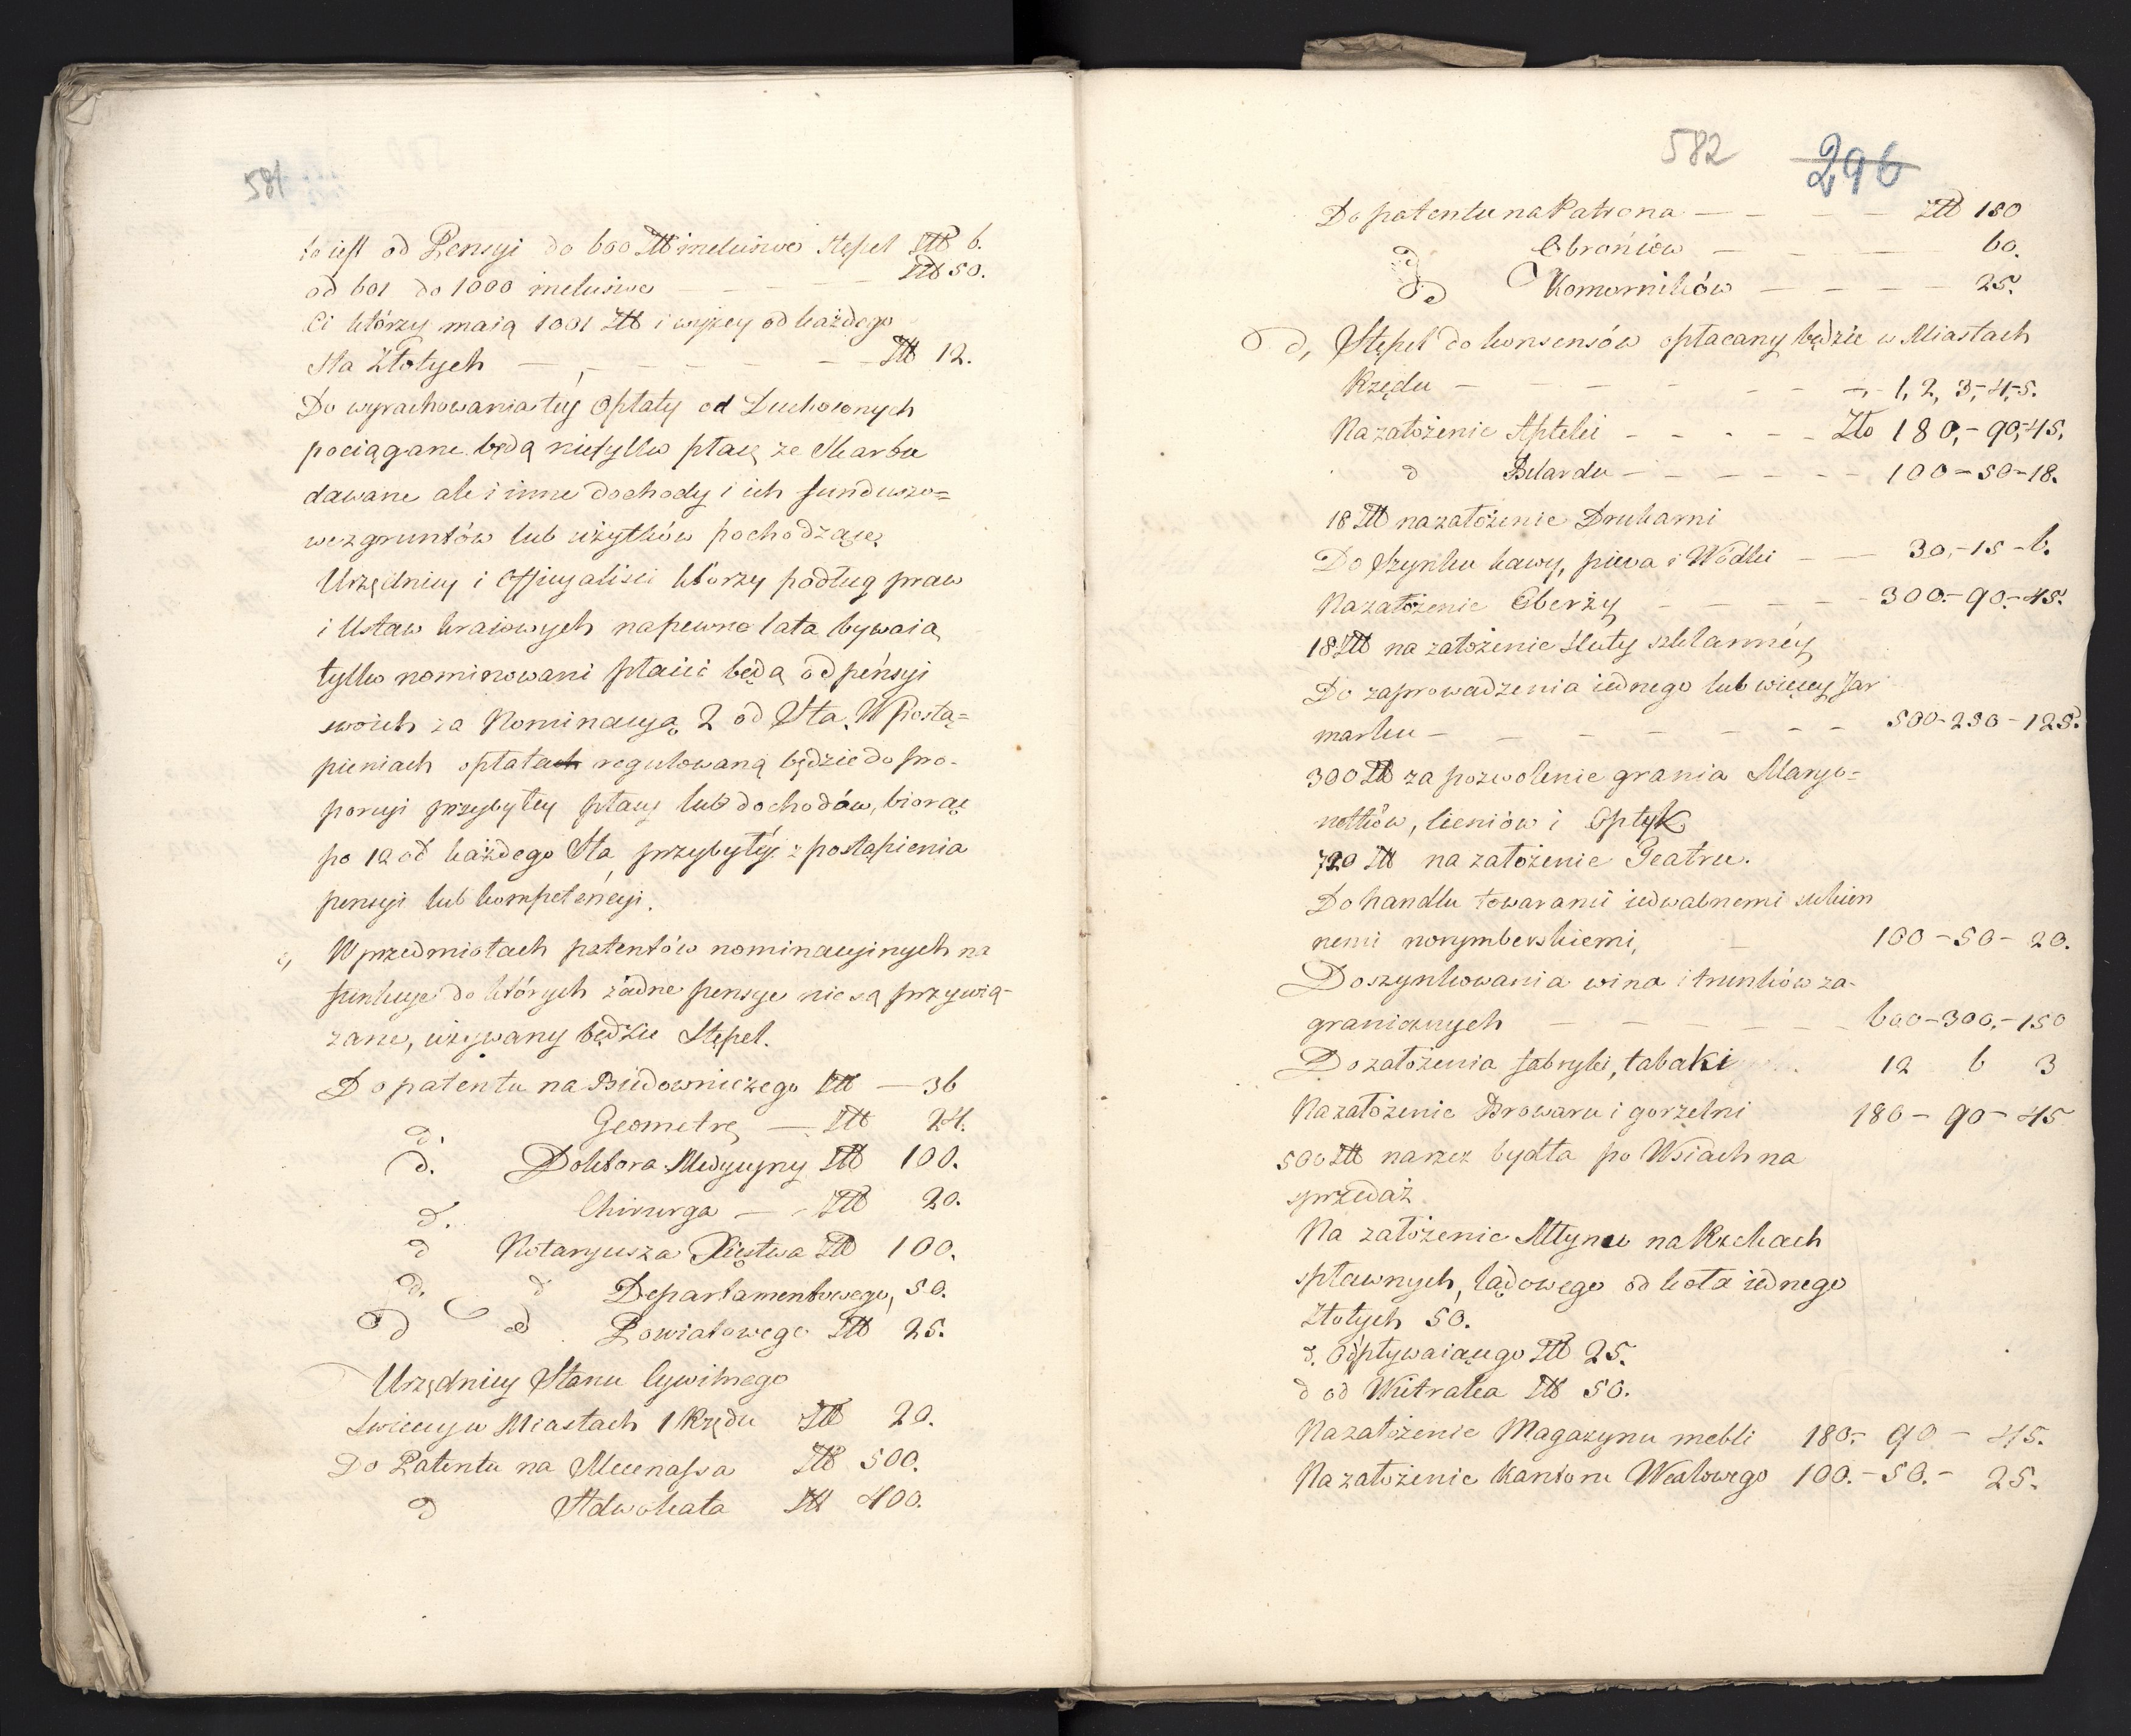 581
to iest od Pensyi do 600 Złt inclusive stępel Złt 6.
od 601 do 1000 inclusive — — — — Złt 50.
Ci którzy maią 1001 Złt i wyżey od każdego
sta Złotych — — — — — — Złt 12.
Do wyrachowania téy Opłaty od Duchownych
pociągane będą nietylko płace ze Skarbu
dawane ale i inne dochody i ich funduszo=
we z gruntów lub użytków pochodzące.
Urzędnicy i Officyaliści którzy podług praw
i Ustaw kraiowych na pewne lata bywaią
tylko nominowani płacić będą od pensyi
swoich za Nominacyą 2 od Sta. W Postą=
pieniach opłata regulowaną będzie do pro-
porcyi przybyłey płacy lub dochodów, biorąc
po 12 od każdego Sta przybyłéy z postąpienia
pensyi lub kompetencyi.
c, W przedmiotach patentów nominacyinych na
funkcye do których żadne pensye nie są przywią-
zane, używany będzie Stępel.
Do patentu na Budowniczego Złt — 36
d. Geometrę — Złt 24.
d. Doktora Medycyny Złt 100.
d. Chirurga — Złt 20.
d Notaryusza Xięstwa Złt 100.
d. d Departamentowego, 50.
d d Powiatowego Złt 25.
Urzędnicy Stanu Cywilnego
świeccy w Miastach 1 Rzędu Złt 20.
Do Patentu na Mecenassa Złt 500.
d Adwokata Złt 400.
582 296
Do patentu na Patrona — — — — Złt 180
d Obrońców — — — — 60.
d Komorników — — — — 25.
d, Stępel do konsensów opłacany będzie w Miastach
Rzędu — — — — — — — 1, 2, 3, 4, 5.
Na założenie Apteki — — — — — Zło 180,-90,-45.
d Bilardu — — — — — 100-50-18.
18 Złt na założenie Drukarni
Do Szynku kawy, piwa i Wódki — — 30,-15-6.
Na założenie Oberży — — — — 300.-90.-45.
18 Złt na założenie Huty szklannéy
Do zaprowadzenia iednego lub więcey Jar
marku — — — — — — — — 500-250-125.
300 Złt za pozwolenie grania Maryo=
nettków, cieniów i Optyk
720 Złt na założenie Teatru.
Do handlu towarami iedwabnemi sukien
nemi norymberskiemi, — 100-50-20.
Do szynkowania wina i trunków za-
granicznych — — — — — — 600-300,-150
Do założenia fabryki, tabaki 12 6 3
Na założenie Browaru i gorzelni 180-90-45
500 Złt na rzez bydła po Wsiach na
sprzedaż
Na założenie Młynu na Rzekach
spławnych, lądowego od koła iednego
Złotych 50.
d. Odpływaiącego Złt 25.
d od Wiatraka Złt 50.
Na założenie Magazynu mebli 180.- 90 - 45.
Na założenie Kantoru Wexlowego 100.-50.- 25.